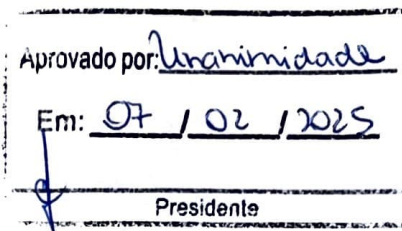 Aprovado por: Unanimidade
Em: 07 / 02 / 2025
Presidente